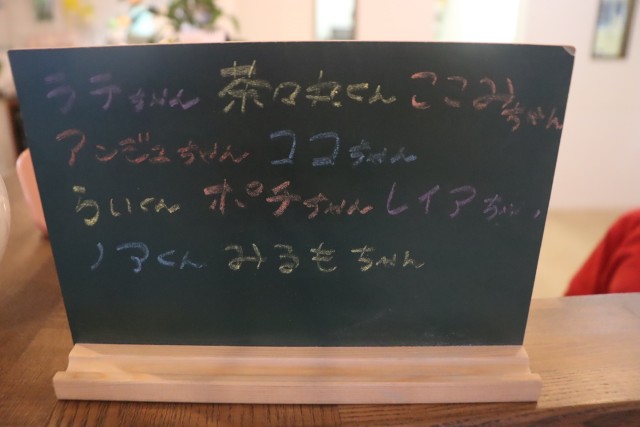 ラテちゃん 茶々丸くん ここみちゃん
アンジュちゃん ココちゃん
らいくん ポチちゃん レイアちゃん
ノアくん みるもちゃん